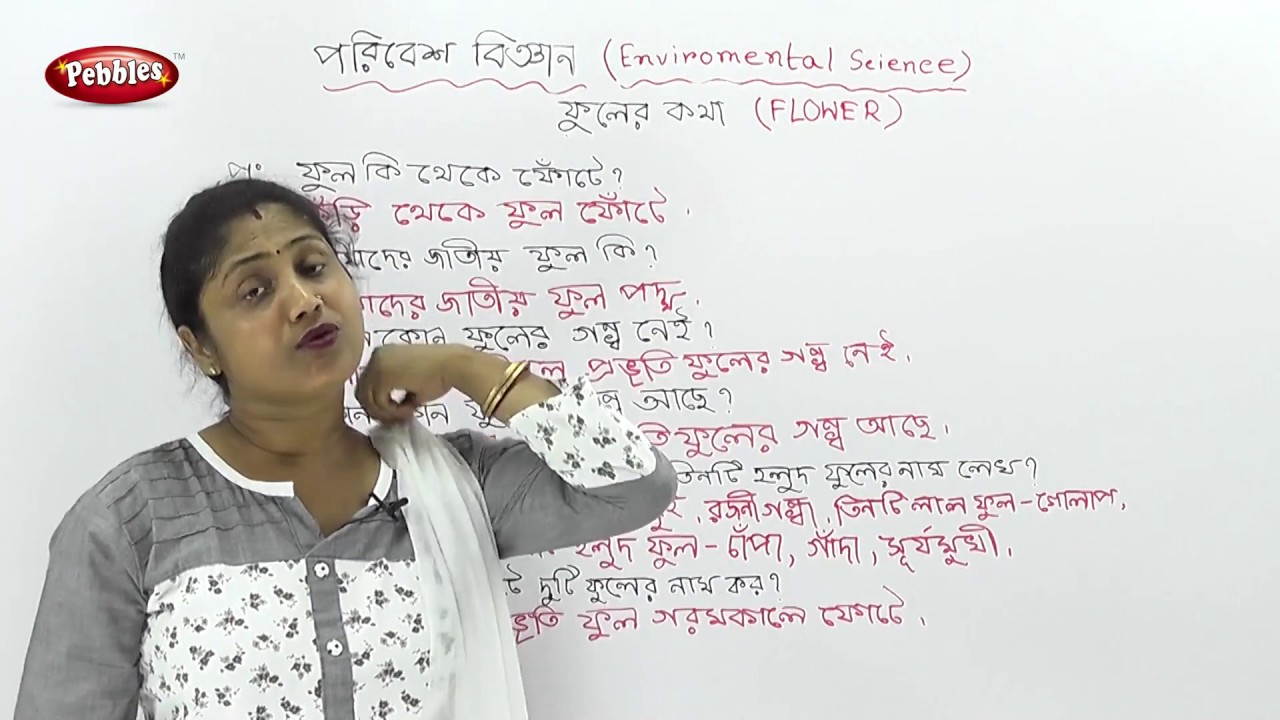 Pebbles TM
পরিবেশ বিজ্ঞান (Enviromental Science)
ফুলের কথা (FLOWER)
ফুল কি থেকে ফোঁটে?
থেকে ফুল ফোঁটে.
জাতীয় ফুল কি?
জাতীয় ফুল পদ্ম.
কোন ফুলের গন্ধ নেই?
প্রভৃতি ফুলের গন্ধ নেই.
আছে?
ফুলের গন্ধ আছে.
হলুদ ফুলের নাম লেখ?
, রজনীগন্ধা, তিনটি লাল ফুল - গোলাপ,
হলুদ ফুল - চাঁপা, গাঁদা, সূর্যমুখী.
দুটি ফুলের নাম কর?
ফুল গরমকালে ফোটে.